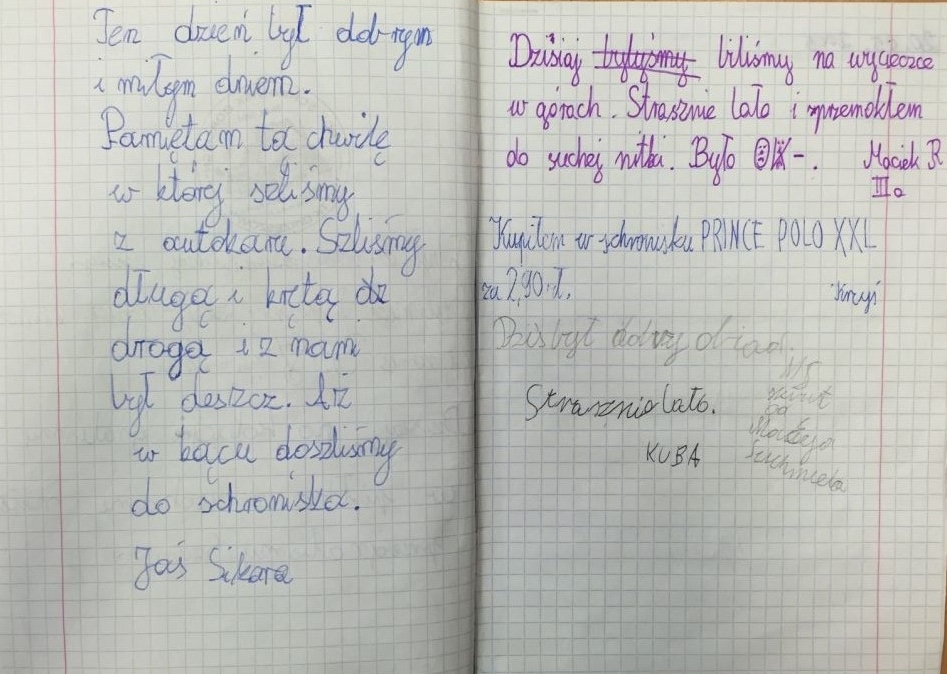 Ten dzień był dobrym
i miłym dniem.
Pamiętam tą chwilę
w której szliśmy
z autokaru. Szliśmy
długą i krętą dr
drogą i z nami
był deszcz. Aż
w kącu doszliśmy
do schroniska.
Jaś Sikora
Dzisiaj byłyśmy biliśmy na wycieczce
w górach. Strasznie lało i przemokłem
do suchej nitki. Było OK-. Maciek R
III a
Kupiłem w schronisku PRINCE POLO XXL
za 2,90 zł. Krzyś
Dziś był dobry obiad.
Strasznie lało.
KUBA
od